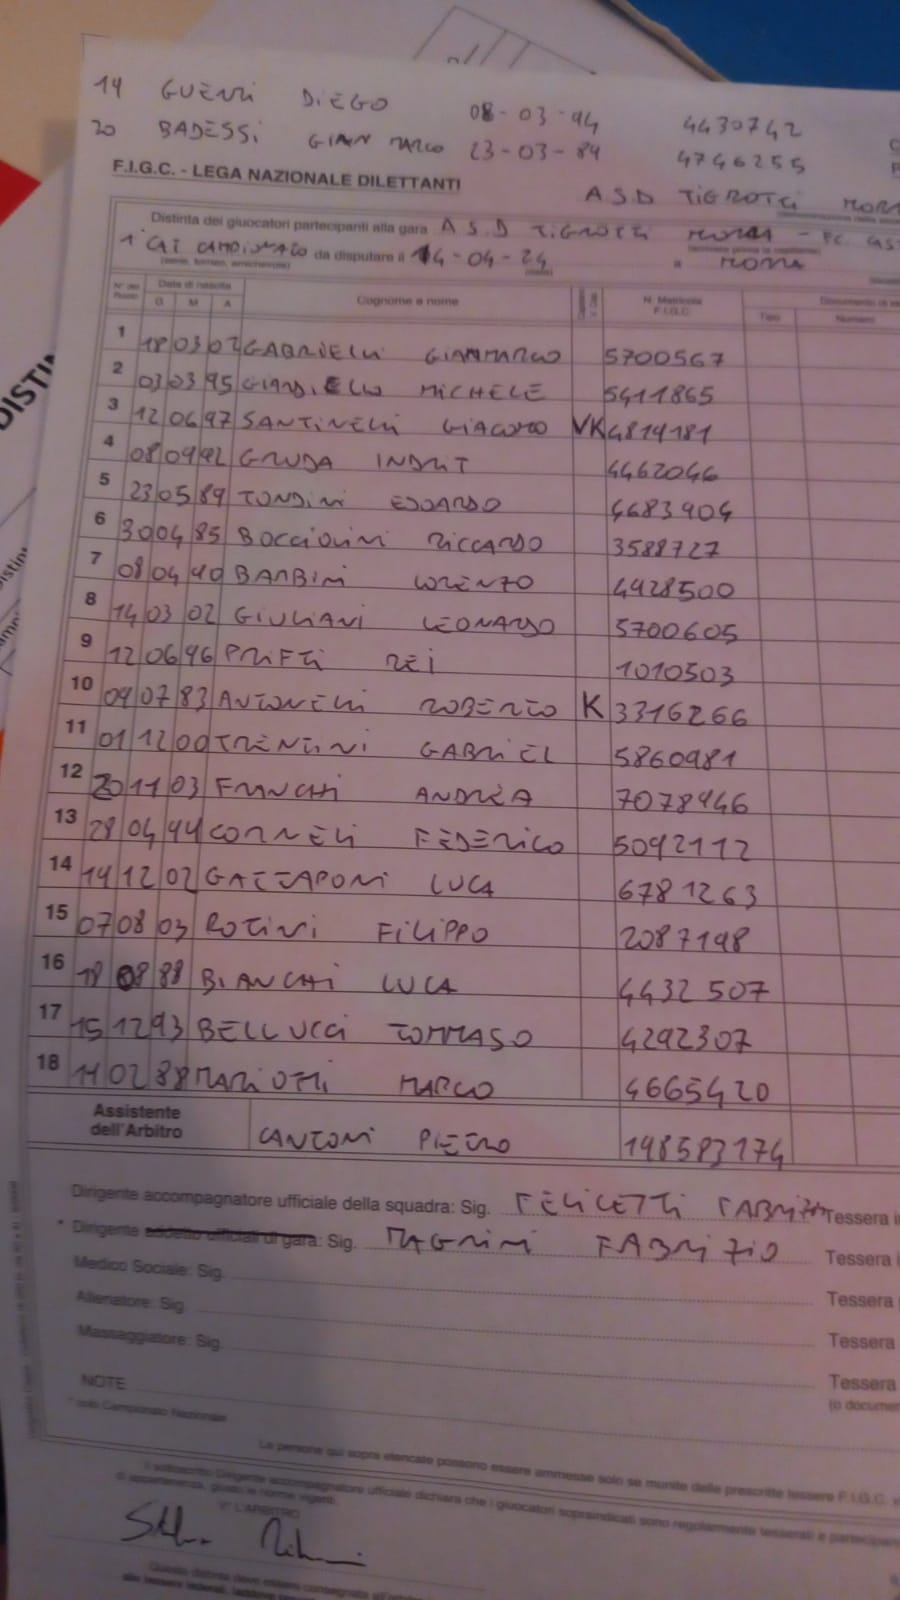 19 GUERRI DIEGO 08-03-94 4430742
20 BADESSI GIAN MARCO 23-03-84 4746255
F.I.G.C. - LEGA NAZIONALE DILETTANTI
A.S.D TIGROTTI
Distinta dei giuocatori partecipanti alla gara A.S.D TIGROTTI
1° CAT da disputare il 14-04-24 a
N. Matricola F.I.G.C.
Data di nascita
G M A Cognome e nome Tipo Numero
1 18 03 02 GABRIELLI GIANMARCO 5700567
2 03 03 95 GIARDIELLO MICHELE 5411865
3 12 06 97 SANTINELLI GIACOMO VK 4819181
4 08 09 92 GRUDA INDRIT 4462046
5 23 05 89 TONDINI EDOARDO 4683904
6 30 04 85 BOCCIOLINI RICCARDO 3588727
7 08 04 90 BARBINI LORENZO 4928500
8 14 03 02 GIULIANI LEONARDO 5700605
9 12 06 96 PRIFTI REI 1010503
10 09 07 83 ANTONELLI ROBERTO K 3316266
11 01 12 00 TRENTINI GABRIEL 5860981
12 20 11 03 FRANCHI ANDREA 7078946
13 28 04 94 CORNELI FEDERICO 5092112
14 19 12 02 GAZZAPONI LUCA 6781263
15 07 08 03 ROTINI FILIPPO 2087198
16 18 08 88 BIANCHI LUCA 4432507
17 15 12 93 BELLUCCI TOMMASO 4292307
18 11 02 88 MARIOTTI MARCO 4665420
Assistente dell'Arbitro CANTONI PIETRO 198583174
Dirigente accompagnatore ufficiale della squadra: Sig. FELICETTI FABRIZIO Tessera
* Dirigente addetto ufficiali di gara: Sig. MAGRINI FABRIZIO Tessera
Medico Sociale: Sig. Tessera
Allenatore: Sig. Tessera
Massaggiatore: Sig. Tessera
NOTE
* solo Campionato Nazionale
Le persone qui sopra elencate possono essere ammesse solo se munite delle prescritte tessere F.I.G.C.
Il sottoscritto Dirigente accompagnatore ufficiale dichiara che i giuocatori sopraindicati sono regolarmente tesserati e
di appartenenza, giusto le norme vigenti.
V° L'ARBITRO